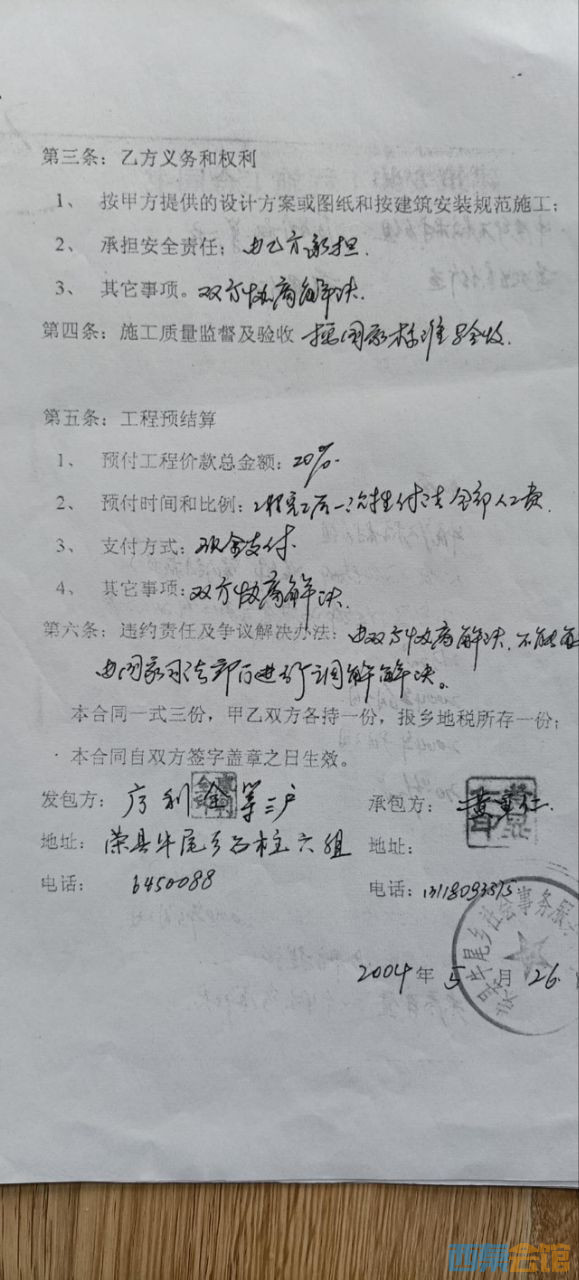 第三条：乙方义务和权利
1、 按甲方提供的设计方案或图纸和按建筑安装规范施工；
2、 承担安全责任；由乙方承担.
3、 其它事项。双方协商解决.
第四条：施工质量监督及验收 按国家标准验收.
第五条：工程预结算
1、 预付工程价款总金额：20%.
2、 预付时间和比例：工程完工后一次性付清全部人工费.
3、 支付方式：现金支付.
4、 其它事项：双方协商解决.
第六条：违约责任及争议解决办法：由双方协商解决.不能
由国家司法部门进行调解解决。
本合同一式三份，甲乙双方各持一份，报乡地税所存一份；
本合同自双方签字盖章之日生效。
发包方： 利金等三户 承包方：黄
地址： 荣县牛尾乡石柱六组 地址：
电话： 6450088 电话：
牛尾乡社会事务服
2004年5月26
西祠会馆